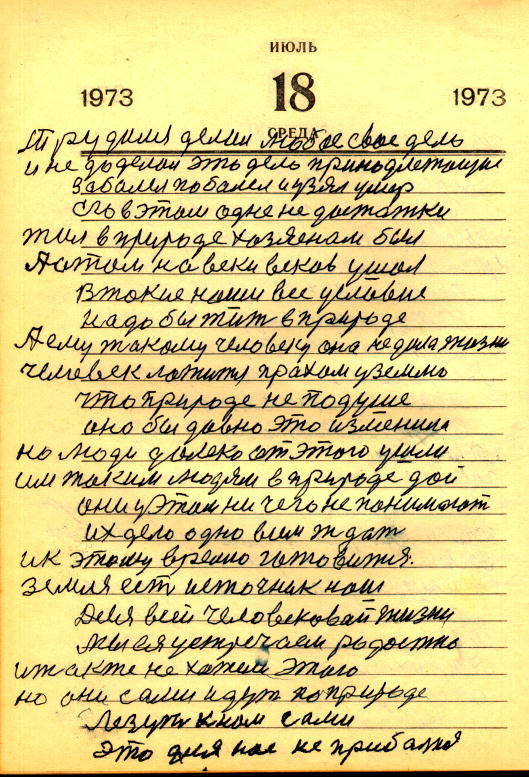 ИЮЛЬ
18
1973 1973
СРЕДА
Трудился делал любое свое дель
и не доделал это дель принодлежащие
забалел побалел и узял умер
Есь в этом одне не достатки
жил в природе хозяенам был
А отом на веки веков ушол
В токие наши все условие
надо бы жит в природе
А ему такому человеку она не дала жизни
человек ложится прахом у землю
что природе не подуше
оно бы давно это изменила
но люди далеко от этого ушли
им таким людям в природе дай
они у этом ни чего не понимают
их дело одно всим ждат
и к этому времю готовится.
Земля ест источник наш
Деля всей человековай жизни
мы ея устречаем радостно
и также не хотем этого
но они сами идут по природе
Лезут к нам сами
это для нас не прибалкя